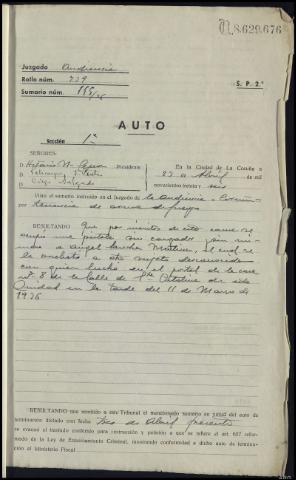 N.8.629.676
Juzgado Audiencia
Rollo núm. 229
Sumario núm. 115/36
S. P. 2.ª
AUTO
Sección 1ª
SEÑORES:
D. Presidente
D.
D. Diego Salgado
En la Ciudad de La Coruña a
23 de Abril de mil
novecientos treinta y seis
Visto el sumario instruido en el Juzgado de la Audiencia - Coruña
por tenencia de armas de fuego
RESULTANDO Que por minutos de esta causa se
una pistola sin cargador, para
a Angel Sanchez el cual se
la a otro sujeto desconocido
con quien lucho en el portal de la casa
nº 8 de la Calle de Sta Catalina de esta
Ciudad en la tarde del 11 de Marzo de
1936
RESULTANDO que remitido a este Tribunal el mencionado sumario en virtud del auto de
terminación dictado con fecha tres de Abril presente
se evacuó el traslado conferido para instrucción y petición a que se refiere el art. 627 refor-
mado de la Ley de Enjuiciamiento Criminal, mostrando conformidad a dicho auto de termina-
ción el Ministerio Fiscal